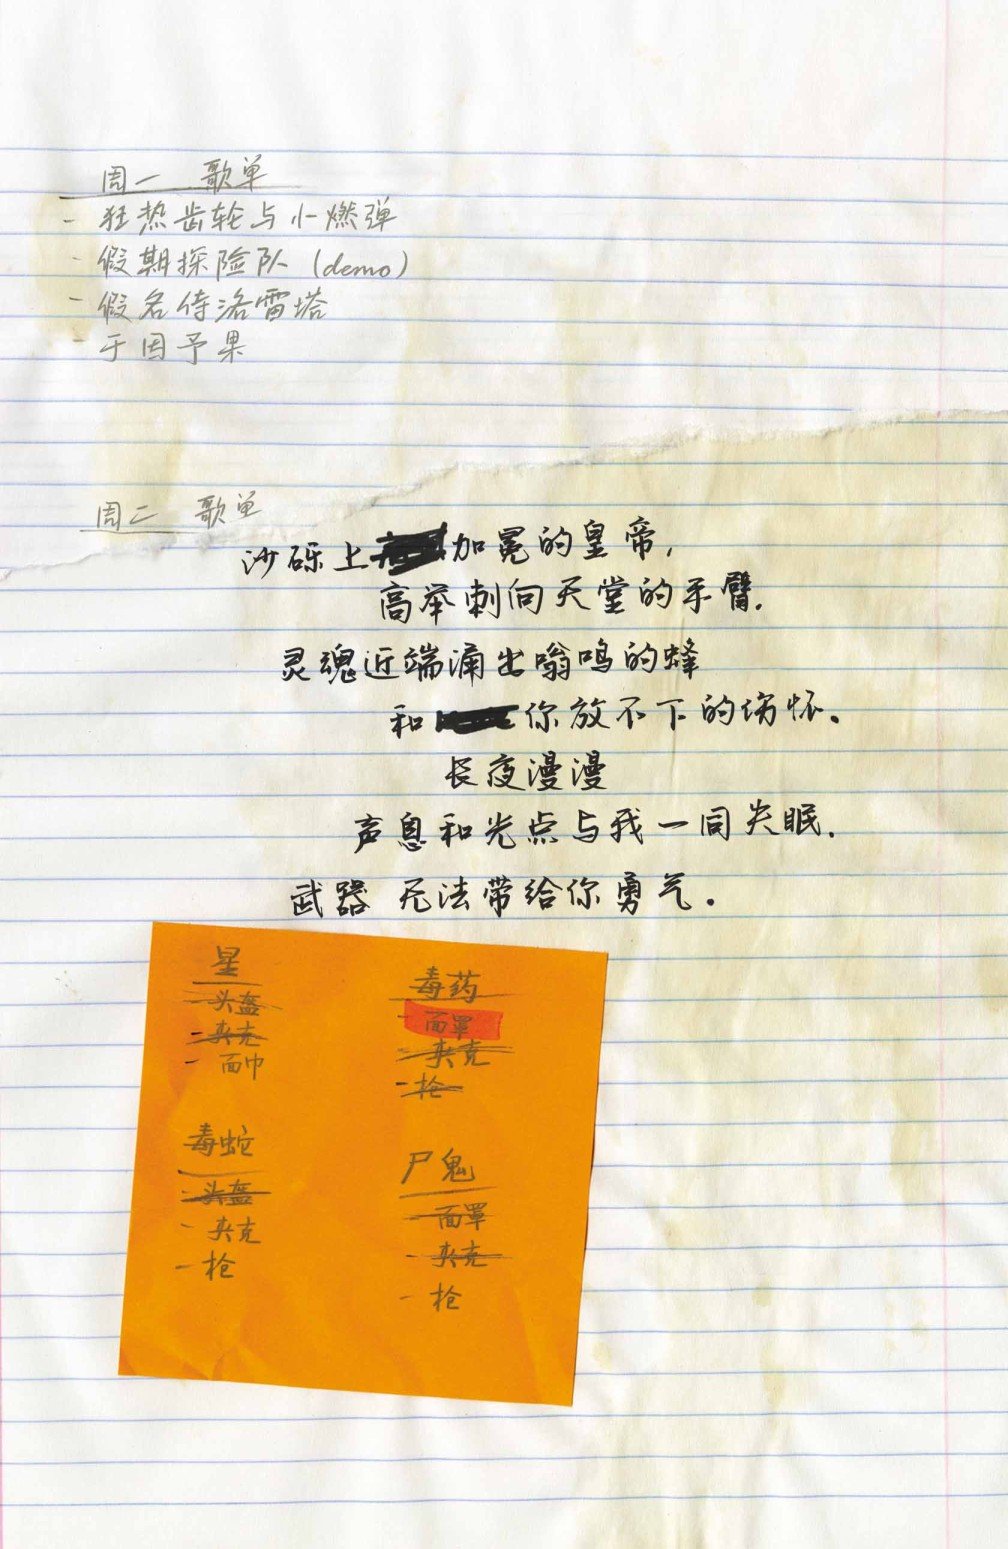 周一 歌单
- 狂热齿轮与小燃弹
- 假期探险队 (demo)
- 假名侍洛雷塔
- 于因予果
周二 歌单
沙砾上加冕的皇帝,
高举刺向天堂的手臂.
灵魂近端涌出嗡鸣的蜂
和你放不下的伤怀.
长夜漫漫
声息和光点与我一同失眠.
武器 无法带给你勇气.
星
- 头盔
- 夹克
- 面巾
毒药
- 面罩
- 夹克
- 枪
毒蛇
- 头盔
- 夹克
- 枪
尸鬼
- 面罩
- 夹克
- 枪